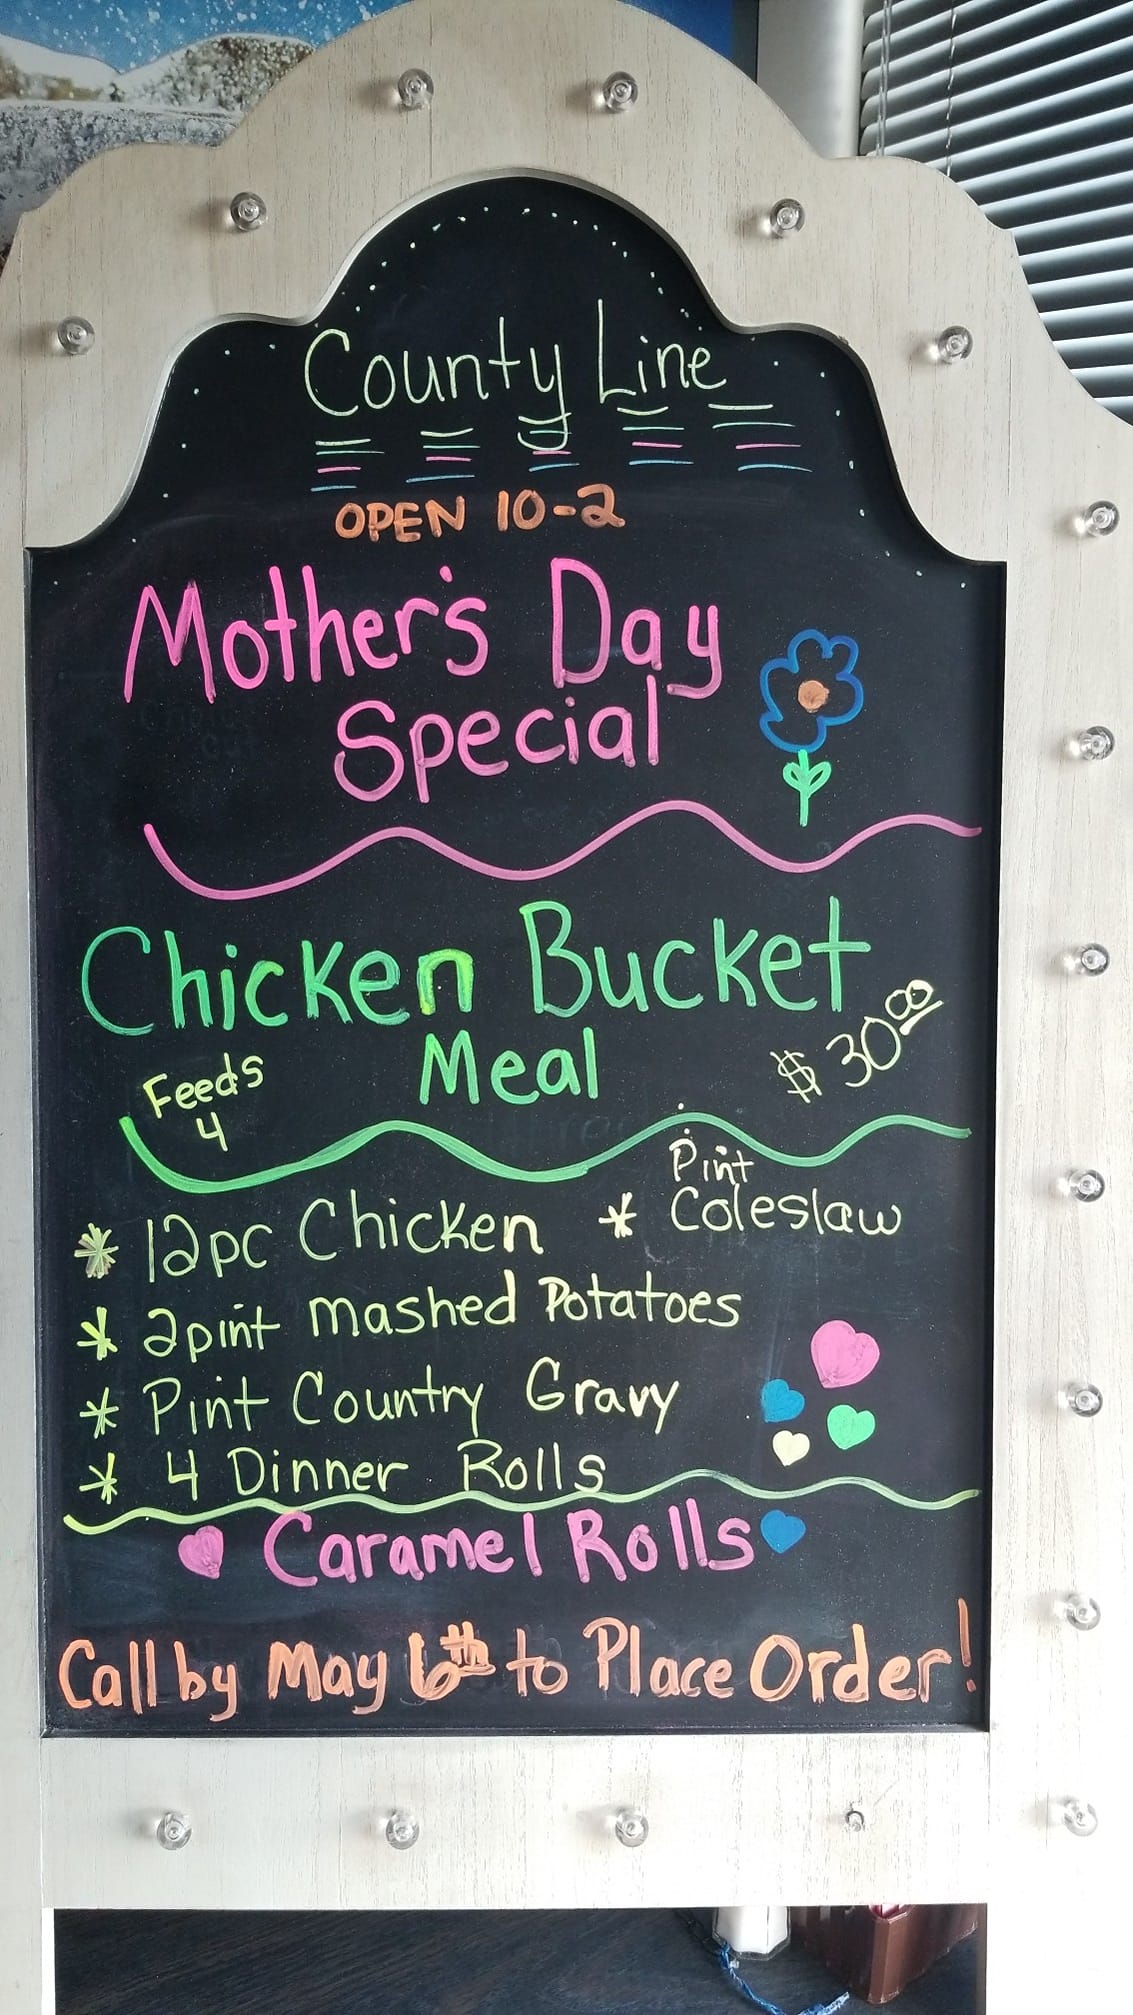 County Line
OPEN 10-2
Mother's Day
Special
Chicken Bucket
Meal
$30.00
Feeds
4
* 12pc Chicken
* Pint
Coleslaw
* 2pint mashed Potatoes
* Pint Country Gravy
* 4 Dinner Rolls
Caramel Rolls
Call by May 6th to Place Order!